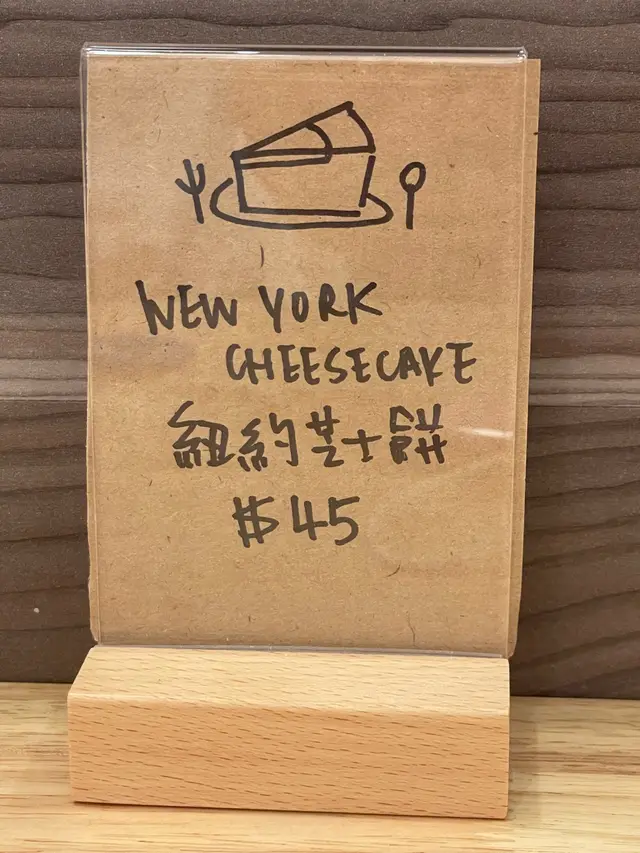 NEW YORK
CHEESECAKE
紐約芝士餅
$45